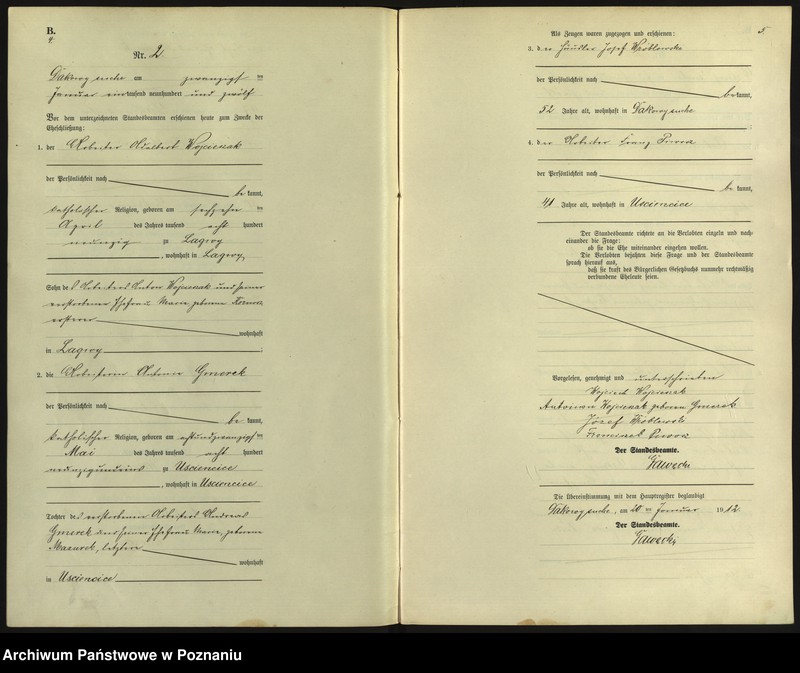 B.
Nr. 2
Dakowy suche am zwanzigsten
Januar eintausend neunhundert und zwölf
Vor dem unterzeichneten Standesbeamten erschienen heute zum Zwecke der
Eheschließung:
1. der Arbeiter Adalbert Wojcieszak
der Persönlichkeit nach
be kannt,
katholischer Religion, geboren am sechzehn ten
April des Jahres tausend acht hundert
neunzig zu Lagwy
, wohnhaft in Lagwy,
Sohn des Arbeiters Anton Wojcieszak und seiner
verstorbenen Ehefrau Marie, geborene
ersterer
wohnhaft
in Lagwy ;
2. die Arbeiterin Antonie Gmerek
der Persönlichkeit nach
be kannt,
katholischer Religion, geboren am achtundzwanzigsten
Mai des Jahres tausend acht hundert
neunzigundeins zu Usciencice
, wohnhaft in Usciencice
Tochter des verstorbenen Arbeiters Andreas
Gmerek und seiner Ehefrau Marie, geborene
Mazurek, letztere
wohnhaft
in Usciencice
5.
Als Zeugen waren zugezogen und erschienen:
3. der Häusler Josef Wroblewski
der Persönlichkeit nach
be kannt,
52 Jahre alt, wohnhaft in Dakowy suche
;
4. der Arbeiter Franz
der Persönlichkeit nach
be kannt,
41 Jahre alt, wohnhaft in Usciencice
Der Standesbeamte richtete an die Verlobten einzeln und nach-
einander die Frage:
ob sie die Ehe miteinander eingehen wollen.
Die Verlobten bejahten diese Frage und der Standesbeamte
sprach hierauf aus,
daß sie kraft des Bürgerlichen Gesetzbuchs nunmehr rechtmäßig
verbundene Eheleute seien.
Vorgelesen, genehmigt und unterschrieben
Wojciech Wojcieszak
Antonina Wojcieszak geborene Gmerek
Józef Wróblewski
Franciszek
Der Standesbeamte.
Gawecki
Die Übereinstimmung mit dem Hauptregister beglaubigt
Dakowy suche, am 20 ten Januar 1912.
Der Standesbeamte.
Gawecki
Archiwum Państwowe w Poznaniu